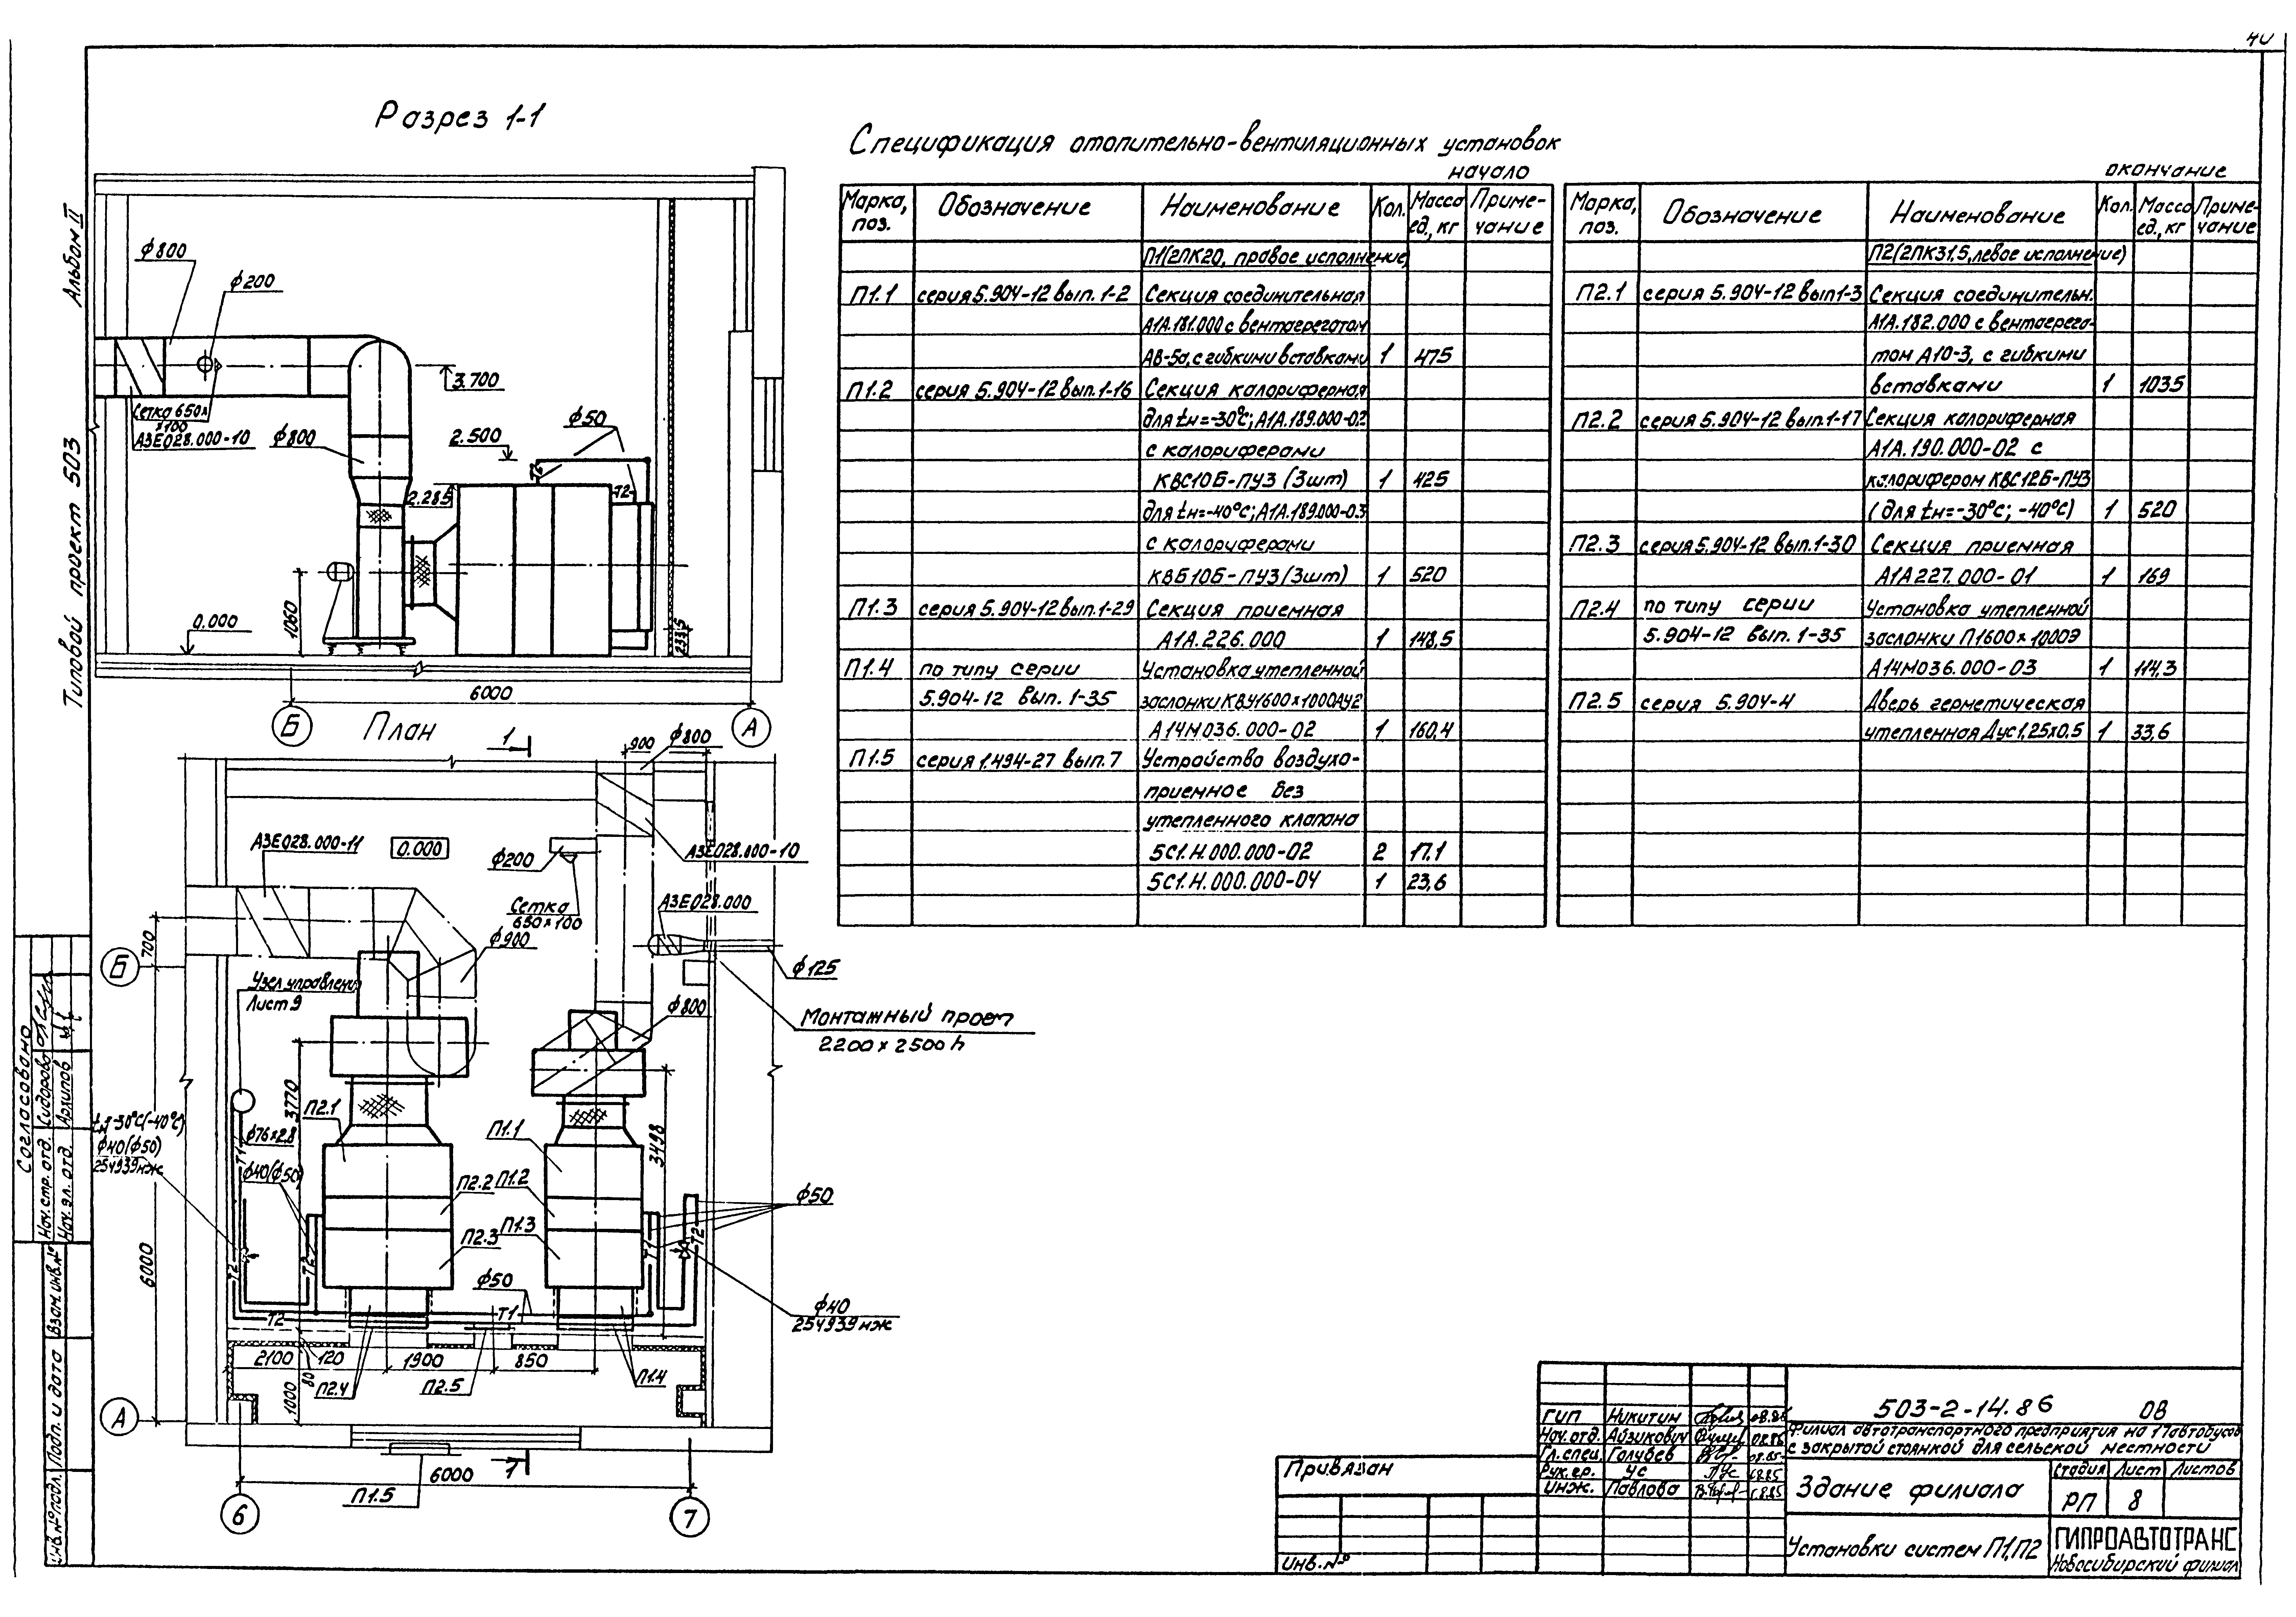 40
Альбом II
Типовой проект 503
Разрез 1-1
ф800
ф200
Сетка 650х
х100
А3Е028.000-10
ф800
3.700
2.500
ф50
2.285
Т2
0.000
1060
235
6000
Б
А
План
1
900
ф800
А3Е028.000-11
0.000
ф200
Сетка
650х100
А3Е028.000-10
А3Е028.000
ф900
ф125
700
Б
Узел управления
Лист 9
ф800
Монтажный проем
2200 х 2500 h
3770
П2.1
tн=-30°С(-40°С)
ф40(ф50)
25ч939нж
ф76х2.8
Т1
ф40(ф50)
П1.1
3498
П2.2
П1.2
П2.3
П1.3
ф50
Т2
Т2
Т1
Т2
6000
ф50
Т1
Т2
ф40
25ч939нж
2100
120
1900
850
80
1000
П2.4
П2.5
П1.4
А
6000
1
П1.5
6
7
Спецификация отопительно-вентиляционных установок
начало
Марка, поз.
Обозначение
Наименование
Кол.
Масса ед., кг
Приме-чание
П1(2ПК20, правое исполнение)
П1.1 серия 5.904-12 вып. 1-2 Секция соединительная
А1А.181.000 с вентагрегатом
АВ-5а, с гибкими вставками 1 475
П1.2 серия 5.904-12 вып. 1-16 Секция калориферная
для tн=-30°С; А1А.189.000-02
с калориферами
КВС10Б-ПУЗ (3шт) 1 425
для tн=-40°С; А1А.189.000-03
с калориферами
КВБ10Б-ПУЗ (3шт) 1 520
П1.3 серия 5.904-12 вып. 1-29 Секция приемная
А1А.226.000 1 148,5
П1.4 по типу серии Установка утепленной
5.904-12 вып. 1-35 заслонки КВУ1600х1000АУ2
А14М036.000-02 1 160,4
П1.5 серия 1.494-27 вып. 7 Устройство воздухо-
приемное без
утепленного клапана
5С1.Н.000.000-02 2 17.1
5С1.Н.000.000-04 1 23,6
окончание
Марка, поз.
Обозначение
Наименование
Кол.
Масса ед., кг
Приме-чание
П2(2ПК31,5, левое исполнение)
П2.1 серия 5.904-12 вып 1-3 Секция соединительн.
А1А.182.000 с вентагрега-
том А10-3, с гибкими
вставками 1 1035
П2.2 серия 5.904-12 вып.1-17 Секция калориферная
А1А.190.000-02 с
калорифером КВС12Б-ПУЗ
(для tн=-30°С; -40°С) 1 520
П2.3 серия 5.904-12 вып. 1-30 Секция приемная
А1А227.000-01 1 169
П2.4 по типу серии Установка утепленной
5.904-12 вып. 1-35 заслонки П1600х1000Э
А14М036.000-03 1 114,3
П2.5 серия 5.904-4 Дверь герметическая
утепленная Дус1,25х0.5 1 33,6
Согласовано
Нач. стр. отд. Сидорова
Нач. эл. отд. Архипов
Взам. инв. №
Подп. и дата
Инв. № подл.
Привязан
Инв. №
ГИП Никитин 08.85
Нач. отд. Айзикович 08.85
Гл. спец. Голубев 08.85
Рук. гр. Ус 08.85
Инж. Павлова 08.85
503-2-14.86 ОВ
Филиал автотранспортного предприятия на 17 автобусов
с закрытой стоянкой для сельской местности
Здание филиала
Стадия Лист Листов
РП 8
Установки систем П1, П2
ГИПРОАВТОТРАНС
Новосибирский филиал